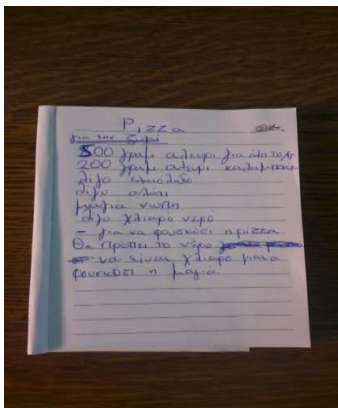 Pizza OK
για την ζυμη
500 γραμ αλευρι για όλα
200 γραμ αλευρι
λιγο
λιγο αλατι
μαγια νωπη
λιγο χλιαρο νερο
- για να φουσκοσι η πιzzα
Θα πρεπει το νερο
να ειναι χλιαρο
φουσκοσι η μαγια